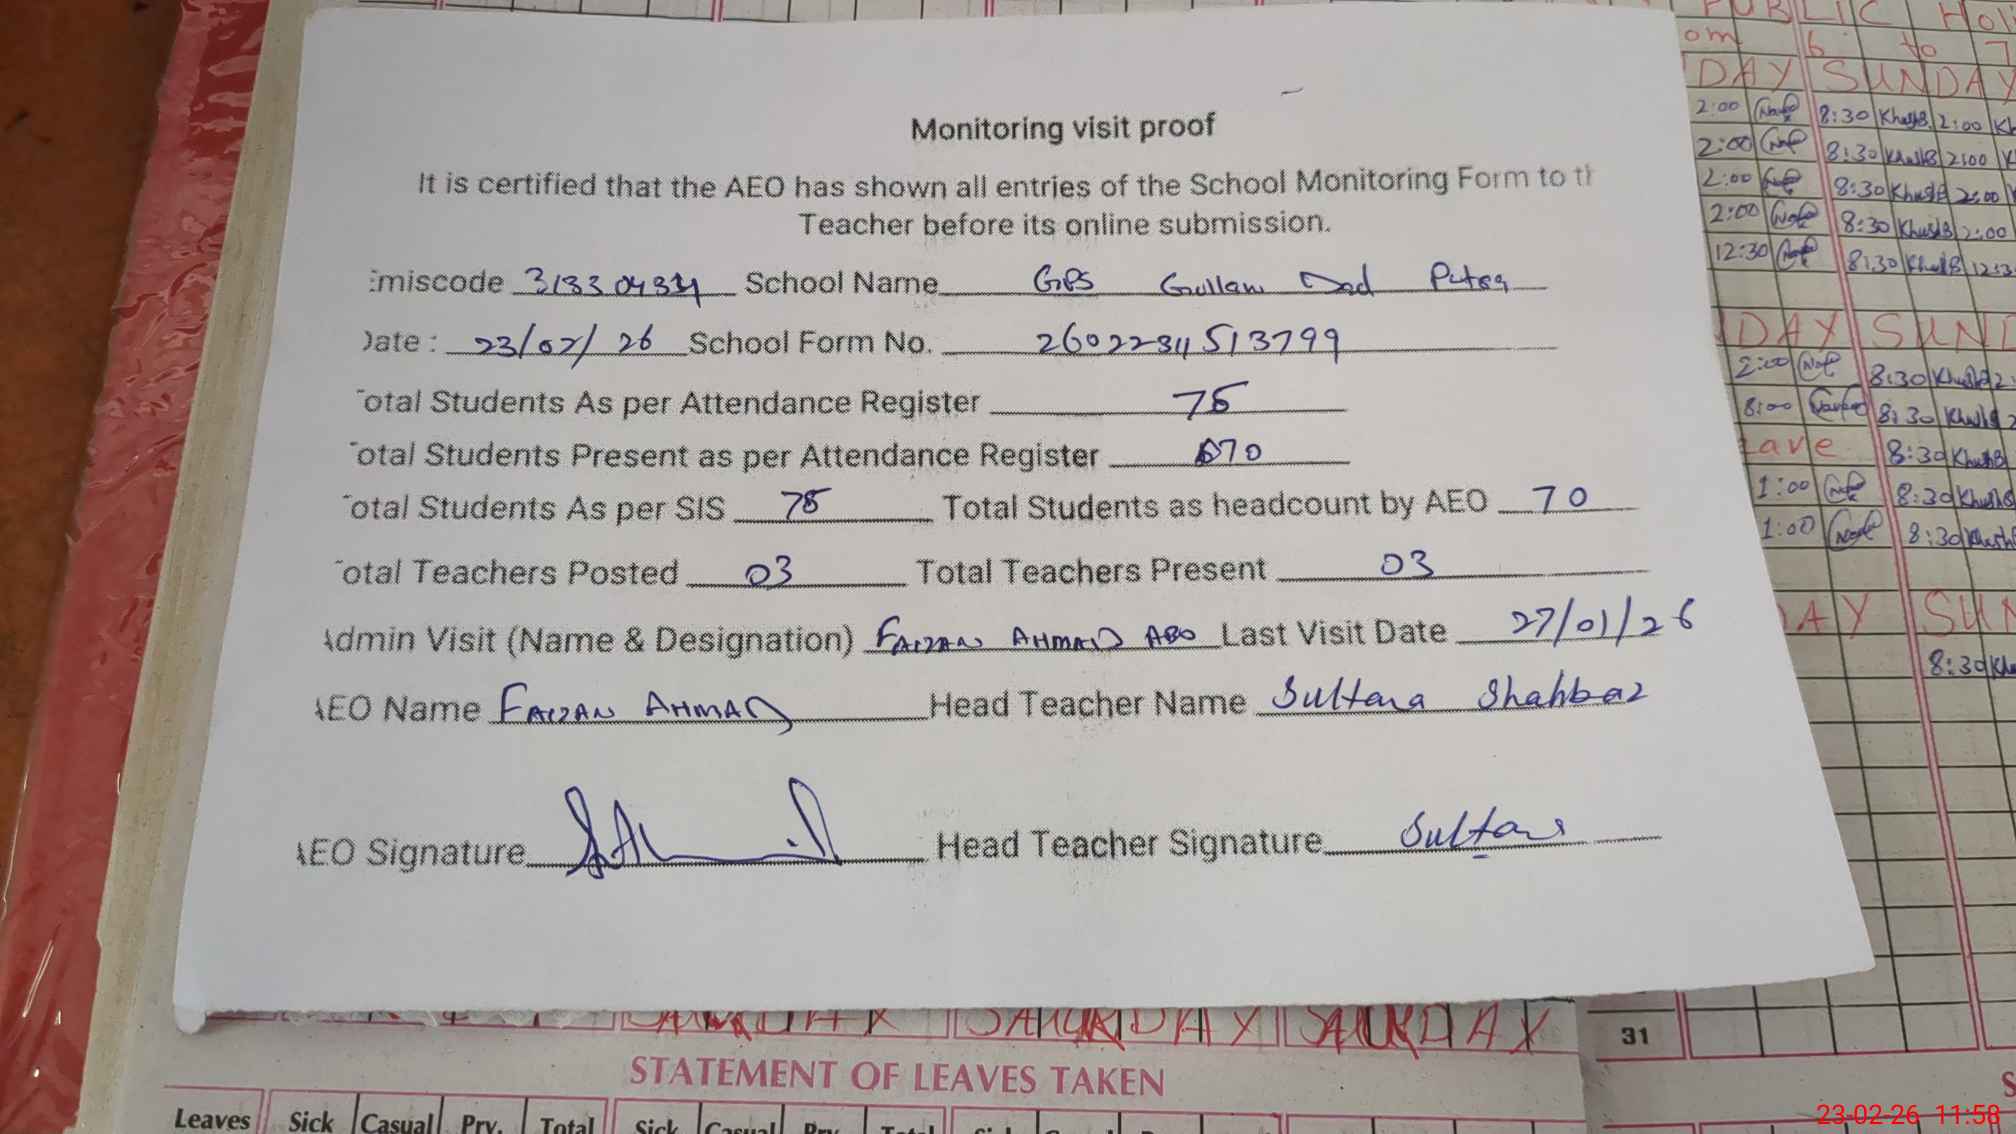 Monitoring visit proof
It is certified that the AEO has shown all entries of the School Monitoring Form to th
Teacher before its online submission.
Emiscode 31330434 School Name GPS Gullam Dad Putra
Date : 23/02/26 School Form No. 26022311513799
Total Students As per Attendance Register 75
Total Students Present as per Attendance Register 70
Total Students As per SIS 75 Total Students as headcount by AEO 70
Total Teachers Posted 03 Total Teachers Present 03
Admin Visit (Name & Designation) FAIZAN AHMAD AEO Last Visit Date 27/01/26
AEO Name FAIZAN AHMAD Head Teacher Name Sultana Shahbaz
AEO Signature Head Teacher Signature Sultana
PUBLIC
6 to 7
DAY SUNDAY
2:00 8:30 2:00
2:00 8:30 2:00
2:00 8:30 2:00
2:00 8:30 2:00
12:30 8:30
DAY
2:00 8:30
8:00 8:30
8:30
1:00 8:30
1:00 8:30
8:30
SATURDAY SATURDAY
31
STATEMENT OF LEAVES TAKEN
Leaves Sick Casual Prv. Total Sick Casual Prv.
23-02-26 11:58